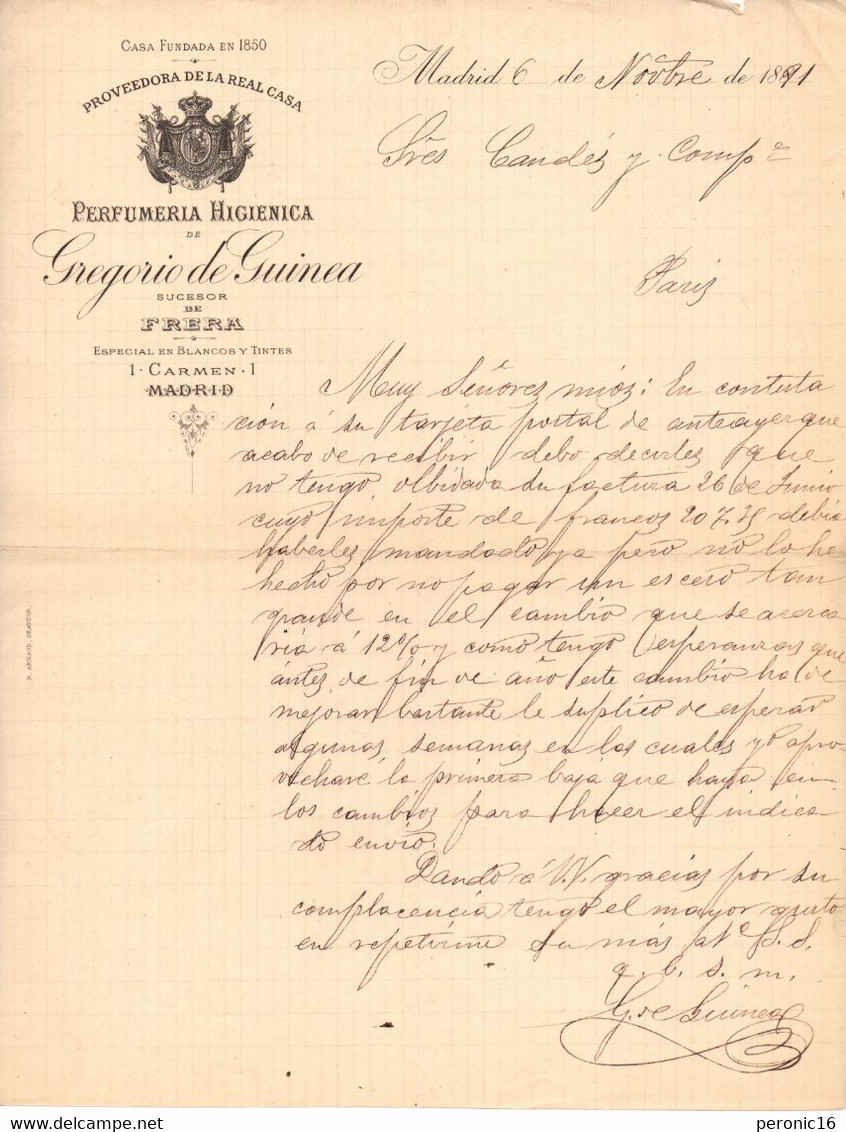 CASA FUNDADA EN 1850
PROVEEDORA DE LA REAL CASA
PERFUMERIA HIGIENICA
DE
Gregorio de Guinea
SUCESOR
DE
FRERA
ESPECIAL EN BLANCOS Y TINTES
1 · CARMEN · 1
MADRID
Madrid 6 de Novbre de 1891
Sres Candés y Compª
Paris
Muy Señores mios: En contesta
ción á su tarjeta postal de anteayer que
acabo de recibir debo decirles que
no tengo olbidada su factura 26 de Junio
cuyo importe de francos 207,25 debia
haberles mandado ya pero no lo he
hecho por no pagar un esceso tan
grande en el cambio que se acerca
ria á 12% y como tengo esperanzas que
ántes de fin de año este cambio ha de
mejorar bastante le suplico de esperar
algunas semanas en las cuales yo apro-
vecharé la primera baja que haya en
los cambios para hacer el indica
do envio.
Dando á V.V. gracias por su
complacencia tengo el mayor gusto
en repetirme su más atº S. S.
q. b. s. m.
G. de Guinea
D. ARNAUD. GRAVEUR.
www.delcampe.net
peronic16